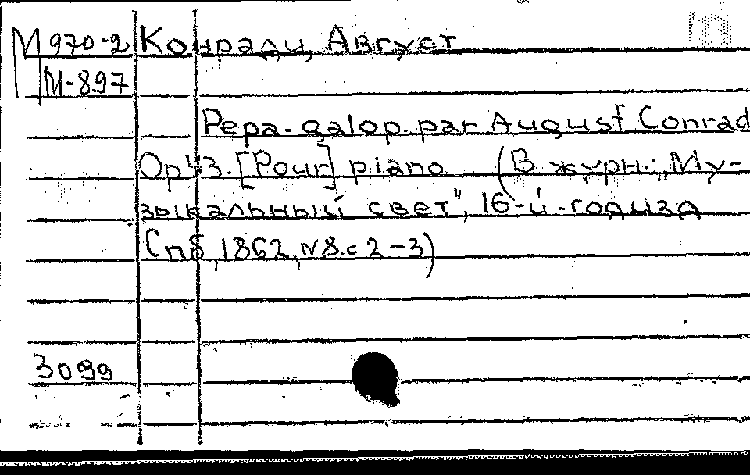 М 970-2 Конради, Август
М-897
Pepa-galop par August Conrad
Op 43. [Pour] piano (В журн.: „Му-
зыкальный свет", 16-й год изд
Спб, 1862, №8. с 2-3)
3099